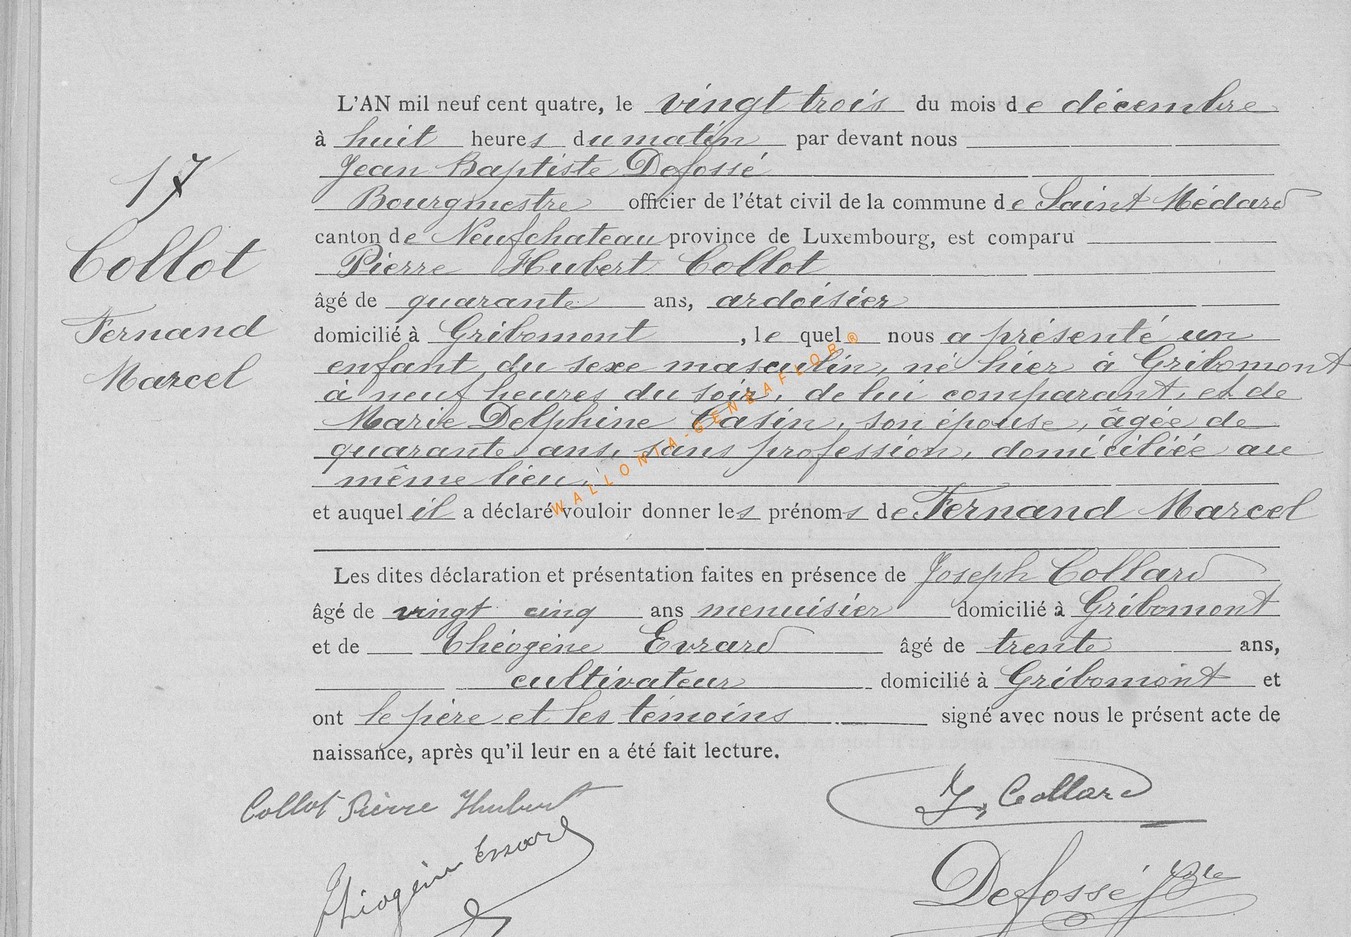 17
Collot
Fernand
Marcel
L'AN mil neuf cent quatre, le vingt trois du mois de décembre
à huit heures du matin par devant nous
Jean Baptiste Defossé
Bourgmestre officier de l'état civil de la commune de Saint Médard
canton de Neufchateau province de Luxembourg, est comparu
Pierre Hubert Collot
âgé de quarante ans, ardoisier
domicilié à Gribomont, le quel nous a présenté un
enfant du sexe masculin, né hier à Gribomont
à neuf heures du soir, de lui comparant, et de
Marie Delphine Casin, son épouse, âgée de
quarante ans, sans profession, domiciliée au
même lieu.
et auquel il a déclaré vouloir donner les prénoms de Fernand Marcel
Les dites déclaration et présentation faites en présence de Joseph Collard
âgé de vingt cinq ans menuisier domicilié à Gribomont
et de Théogène Evrard âgé de trente ans,
cultivateur domicilié à Gribomont et
ont le père et les témoins signé avec nous le présent acte de
naissance, après qu'il leur en a été fait lecture.
Collot Pierre Hubert
J. Collard
Théogène Evrard
Defossé JBte
WALLONIA-GENEAFLOR®